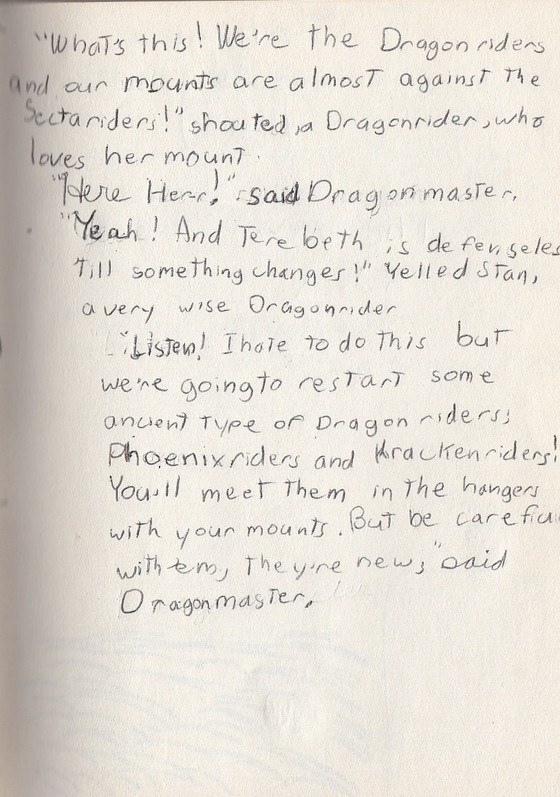 "What's this! We're the Dragonriders
and our mounts are almost against the
Sectariders!" shouted, a Dragonrider, who
loves her mount.
"Here Herr!" said Dragonmaster.
"Yeah! And Terebeth is defenseles
Till something changes!" Yelled Stan,
a very wise Dragonrider
"Listen! I hate to do this but
we're going to restart some
ancient type of Dragonriders;
Phoenixriders and Krackenriders!
You'll meet them in the hangers
with your mounts. But be carefu
with em, they're new;" said
Dragonmaster.